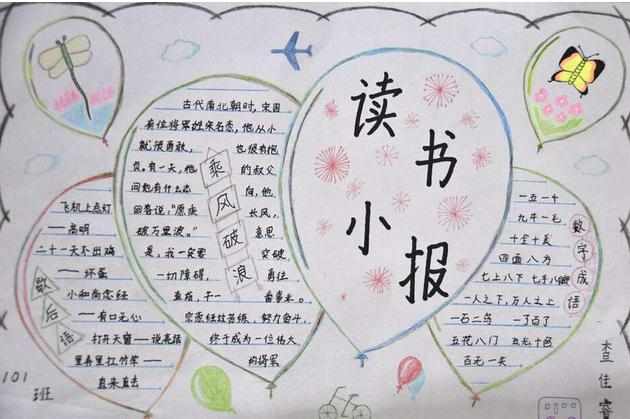 读书小报
古代南北朝时,宋国
有位将军姓宗名悫,他从小
就很勇敢, 也很有抱
负,有一天,他 的叔父
问他有什么志 向,他
回答说:"愿乘 长风,
破万里浪。" 意思
是,我一定要 突破
一切障碍, 勇往
直前,干一 番事业。
宗悫经过苦练,努力奋斗,
终于成为一位伟大
的将军
乘风破浪
歇后语
飞机上点灯
——高明
二十一天不出鸡
——坏蛋
小和尚念经
——有口无心
打开天窗——说亮话
里弄里扛竹竿——
直来直去
数字成语
一五一十
九牛一毛
十全十美
四面八方
七上八下 七手八脚
一人之下,万人之上
一石二鸟 一了百了
五花八门 五光十色
百无一失
101
班
查佳睿